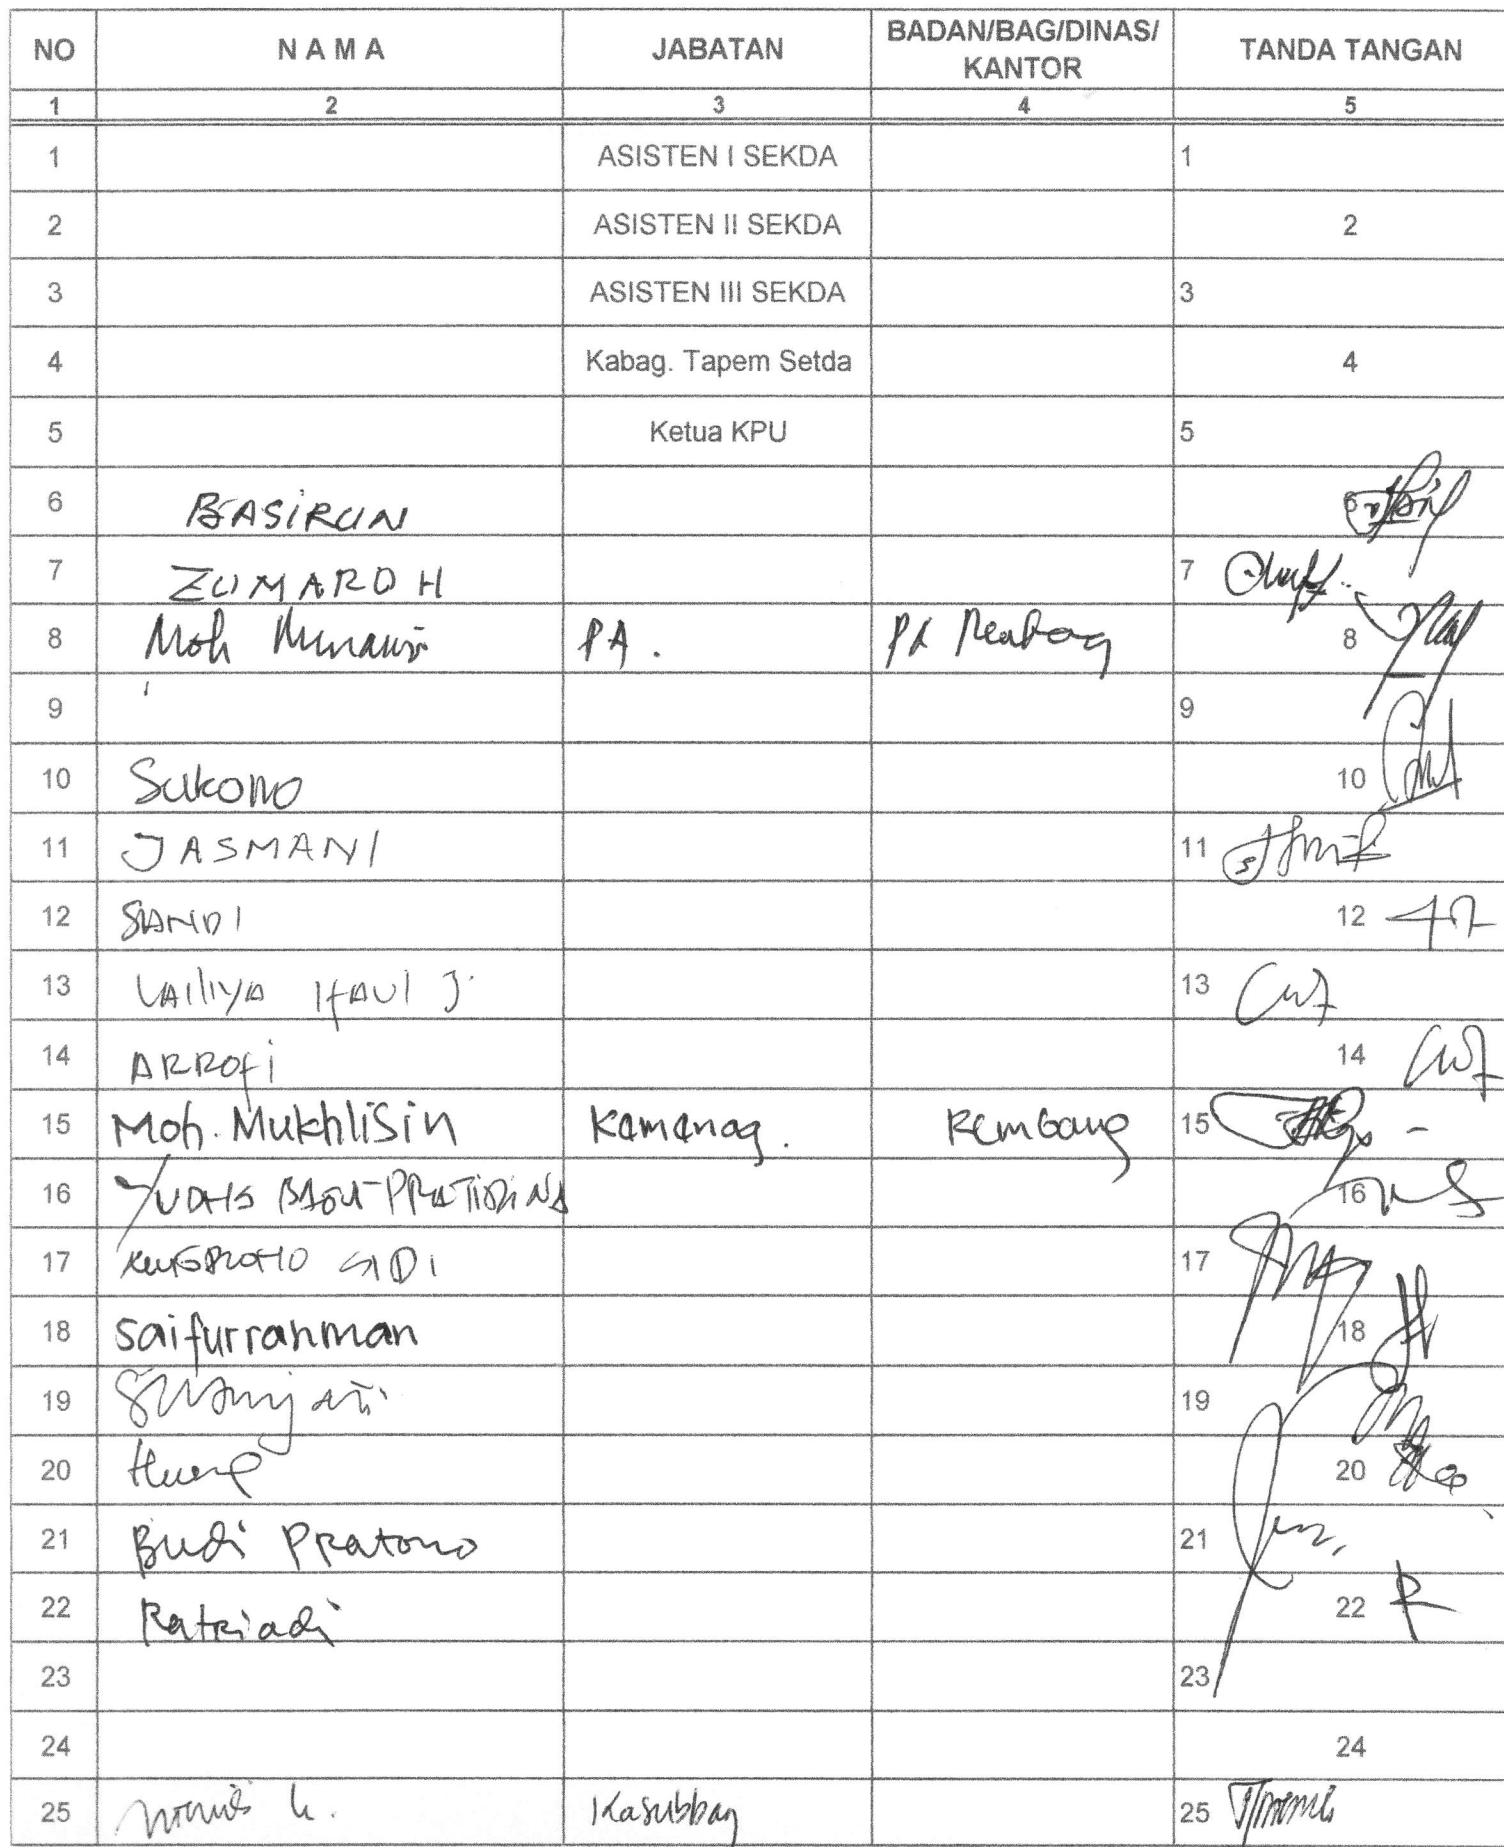 NO NAMA JABATAN BADAN/BAG/DINAS/ TANDA TANGAN
KANTOR
1 2 3 4 5
1 ASISTEN I SEKDA 1
2 ASISTEN II SEKDA 2
3 ASISTEN III SEKDA 3
4 Kabag. Tapem Setda 4
5 Ketua KPU 5
6 BASIRUN 6
7 ZUMAROH 7
8 Moh PA. PA 8
9 9
10 Sukono 10
11 JASMANI 11
12 SANDI 12
13 LAILIYA J. 13
14 ARROFI 14
15 Moh. Mukhlisin Kemenag. Rembang 15
16 16
17 17
18 Saifurrahman 18
19 19
20 20
21 Budi Pratono 21
22 Ratriadi 22
23 23
24 24
25 Kasubbag 25